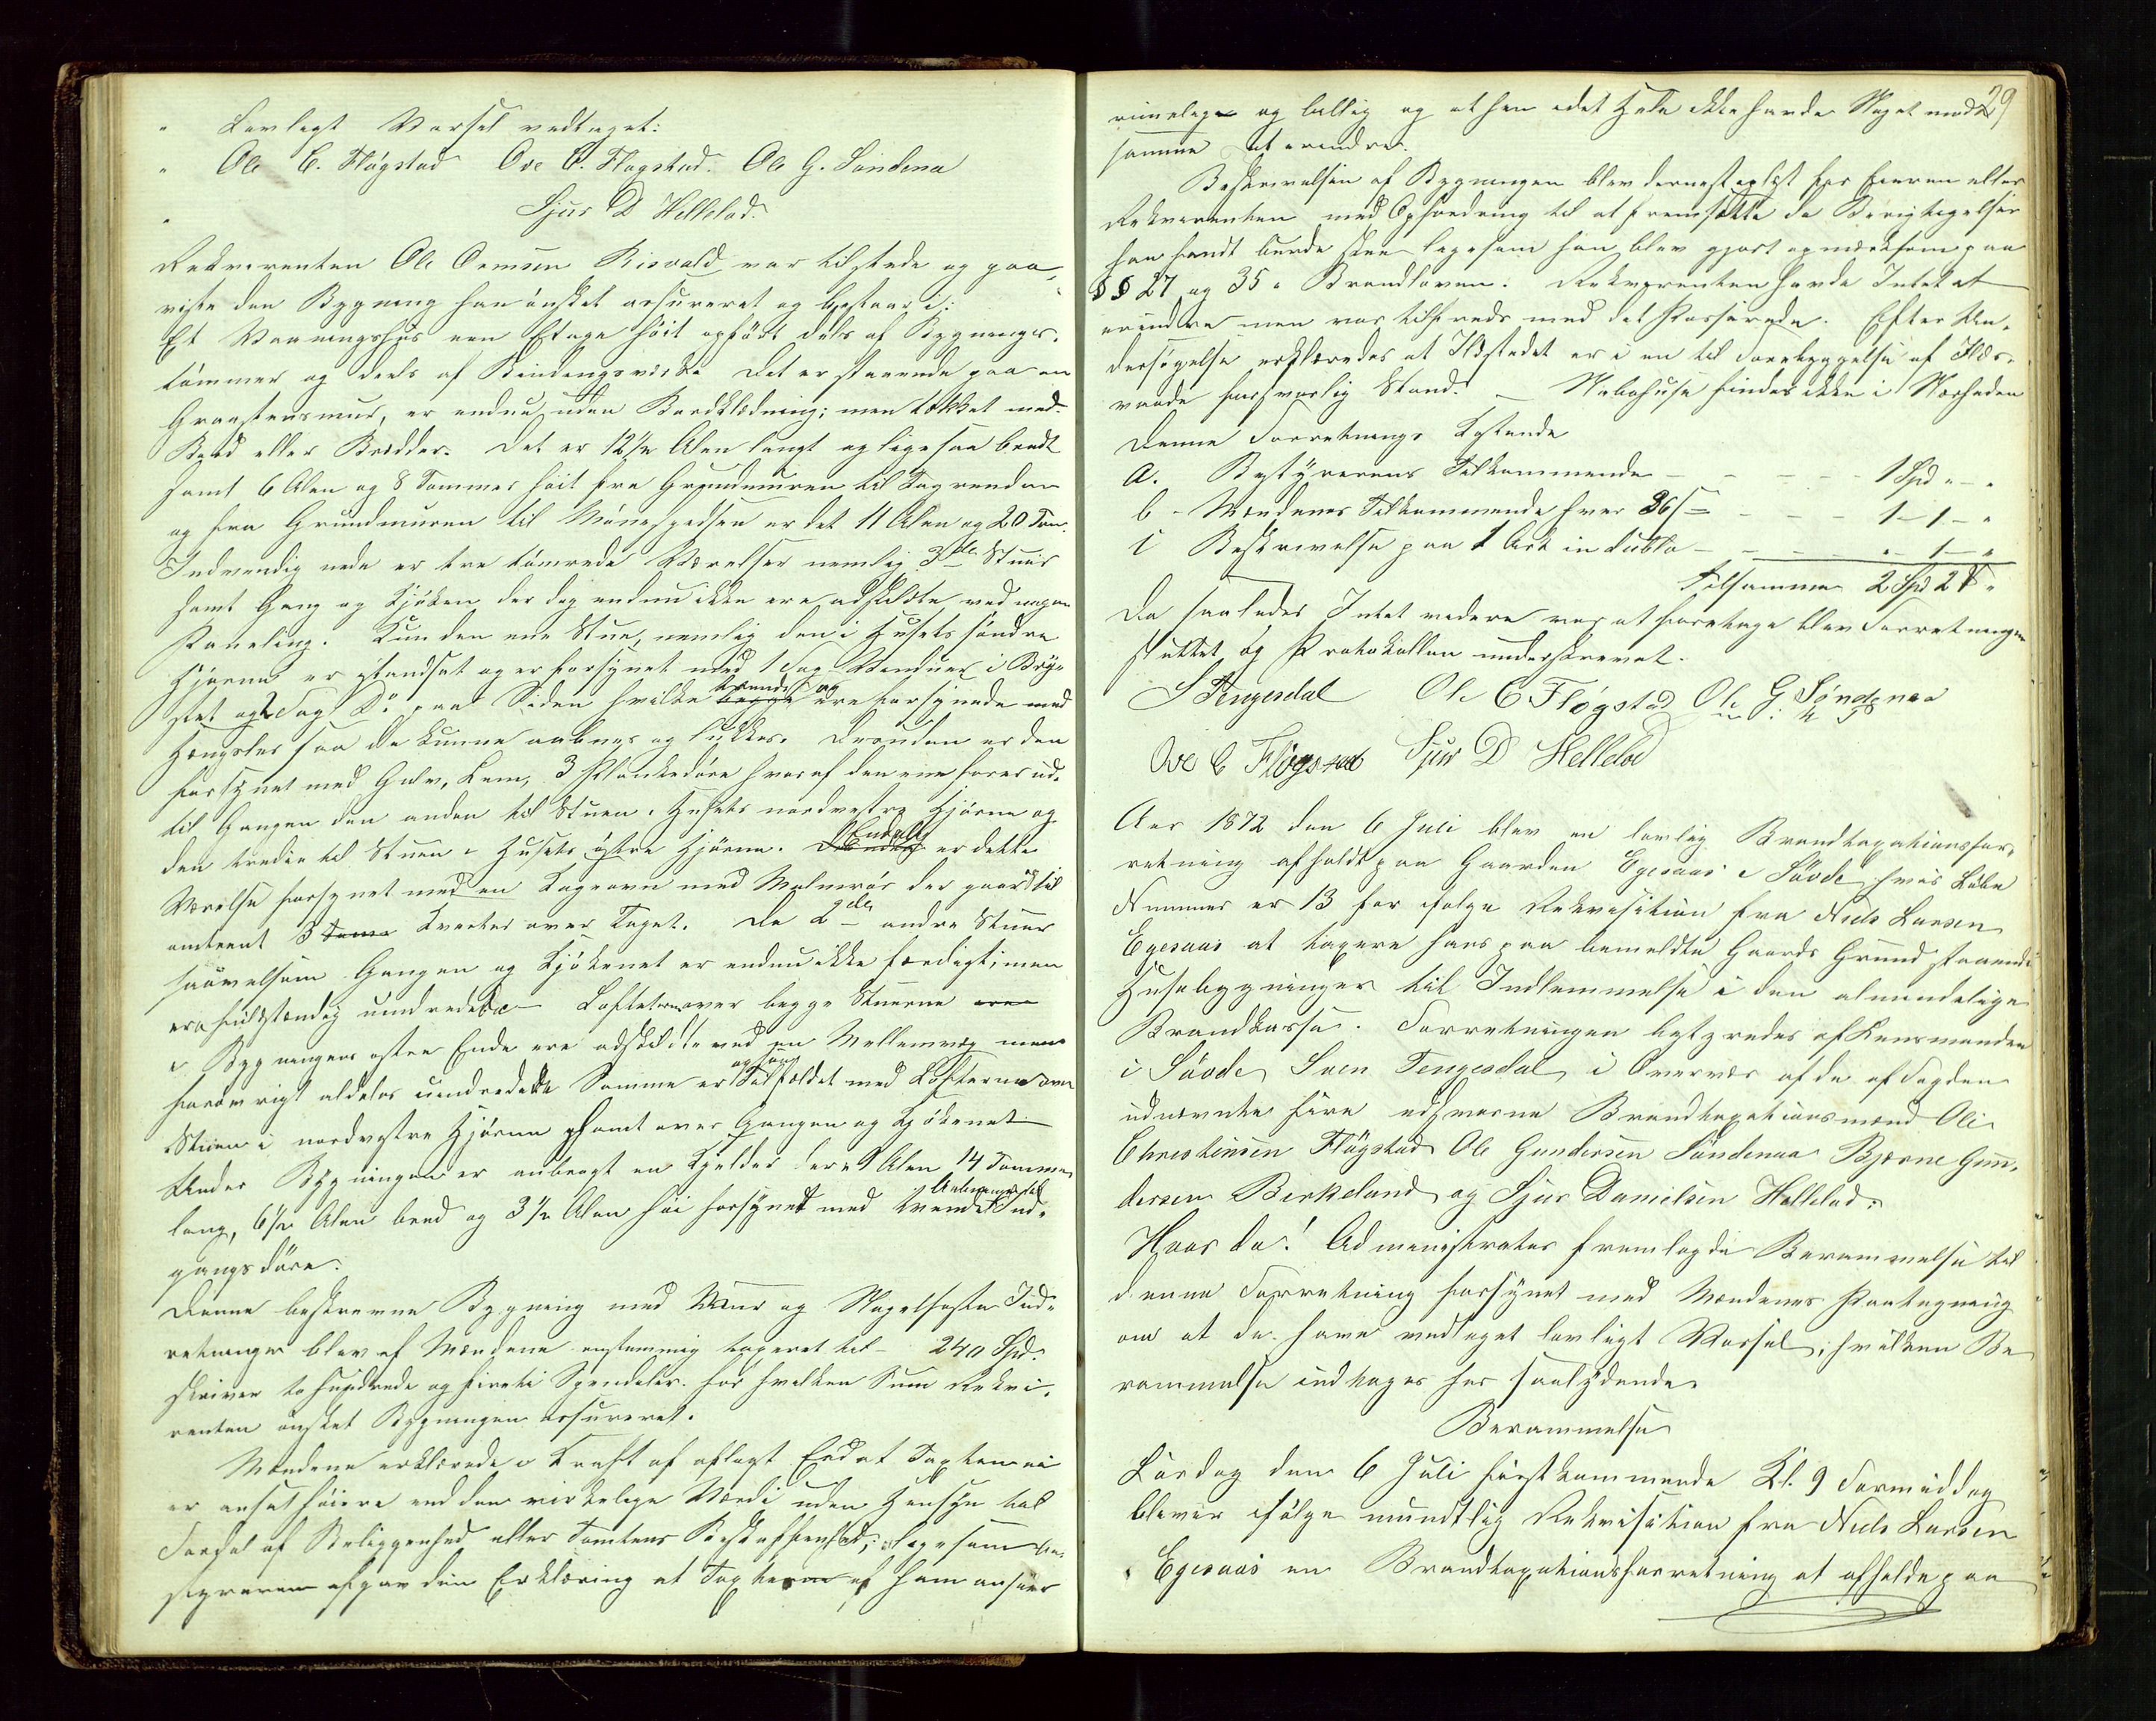 " Lovligt Varsel vedtaget:
" Ole C. Fløgstad Ove C. Flogstad. Ole G. Søndena
" Sjur D Hellelad.
Rekvirenten Ole Osmun Risvold var tilstede og paa„
viste den Bygning han ønsket assureret og bestaar i:
Et Vaaningshus een Etage høit opført dels af Bygnings„
tømmer og deels af Bindingsværke det er staaende paa en
Graasteensmur, er endnu uden Bordklædning; men tækket med
Bord eller Brædder. Det er 12½ Alen langt og ligesaa bredt
samt 6 Alen og 8 Tommer høit fra Grundmuren til Tagrenden
og fra Grundmuren til Mønespidsen er det 11 Alen og 20 Tom.
Indvendig nede er tre tømrede Værelser nemlig 3de Stuer
samt Gang og Kjøken der dog endnu ikke ere adskildte ved nogen
Paneling. Kun den ene Stue, nemlig den i Husets søndre
Hjørne er istandsat og er forsynet med 1 Fag Vinduer i Bry„
stet og 2 Fag Do paa Siden hvilke begge trende og ere forsynede med
Hængsler saa de kunne aabnes og lukkes. Desuden er den
forsynet med Gulv, Lem, 3 Plankedøre hvoraf den ene fører ud
til Gangen den anden til Stuen i Husets nordvestre Hjørne og
den tredie til Stuen i Husets østre Hjørne. Endelig er dette
Værelse forsynet med en Kogeovn med Malmrør der gaar til
omtrent 3 Tome Kvarter over Taget. De 2de andre Stuer
saavelsom Gangen og Kjøkenet er endnu ikke færdigt; men
ere fuldstændig uindredede Lofterne over begge Stuerne ere
i Bygningens østre Ende ere adskildte ved en Mellemvæg men
forøvrigt aldeles uindredede Samme er ogsaa Tilfældet med Lofterne over
Stuen i nordvestre Hjørne samt over Gangen og Kjøkenet
Under Bygningen er anbragt en Kjelder der er 9 Alen 14 Tommer
lang, 6½ Alen bred og 3½ Alen høi forsynet med tvende Ind„
gangsdøre.
Denne beskrevne Bygning med Muur og Nagelfaste Ind„
retninger blev af Mændene enstemmig taxeret til 240 Spd:
skriver tohundrede og fireti Speciedaler. for hvilken Sum Rekvi„
renten ønsket Bygningen assureret.
Mændene erklærede i Kraft af aflagt Eed at Taxten ei
er ansat høiere end den virkelige Værdi uden Hensyn til
Fordel af Beliggenhed eller Tomtens Beskaffenhed; ligesom be„
styreren afgav din Erklæring at Taxterne af ham ansees
29
rimelige og billig og at han idet Hele ikke havde Noget mod
samme at erindre.
Beskrivelsen af Bygningen blev dernæst oplæst for Eieren eller
Rekvirenten med Opfordring til at fremsætte de Berigtigelser
han fandt burde skee ligesom han blev gjort opmærksom paa
§§ 27 og 35 i Brandloven. Rekvirenten havde Intet at
erindre men var tilfreds med det Passerede. Efter Un„
dersøgelse erklæredes at Ildstedet er i en til Forebyggelse af Ilds„
vaade forsvarlig Stand. — Nabohuse findes ikke i Nærheden
Denne Forretnings Kostende
a. Bestyrerens Tilkommende — — — — 1 Spd " — "
b — Mændenes Tilkommende hver 36 s — — — 1 — 1 — "
c Beskrivelse paa 1 Ark in dublo — — — " — 1 — "
Tilsammen 2 Spd 2 ₰ "
Da saaledes Intet videre var at foretage blev Forretningen
sluttet og Protokollen underskrevet.
S Tengesdal Ole C Fløgstad Ole G Søndenaa
m: h: P
Ove C Fløgstad Sjur D Hellelad
Aar 1872 den 6 Juli blev en lovlig Brandtaxationsfor„
retning afholdt paa Gaarden Egesaas i Søvde hvis Løbe
Nummer er 13 for ifølge Rekvisition fra Niels Larsen
Egesaas at taxere hans paa bemeldte Gaards Grund staaende
Husebygninger til Indlemmelse i den almindelige
Brandkasse. Forretningen bestyredes af Lensmanden
i Søvde Sven Tengesdal i Overvær af de af Fogden
udnævnte fire edsvorne Brandtaxationsmænd Ole
Christensen Fløgstad Ole Gundersen Søndenaa Bjerne Gun„
dersen Birkeland og Sjur Danielsen Hellelad:
Hvor da! Administrator fremlagde Berammelse til
denne Forretning forsynet med Mændenes Paategning
om at de have vedtaget lovligt Varsel; hvilken Be
rammelse indtages her saalydende
Berammelse
Lørdag den 6 Juli førstkommende Kl. 9 Formiddag
bliver ifølge mundtlig Rekvisition fra Niels Larsen
Egesaas en Brandtaxationsforretning at afholde paa